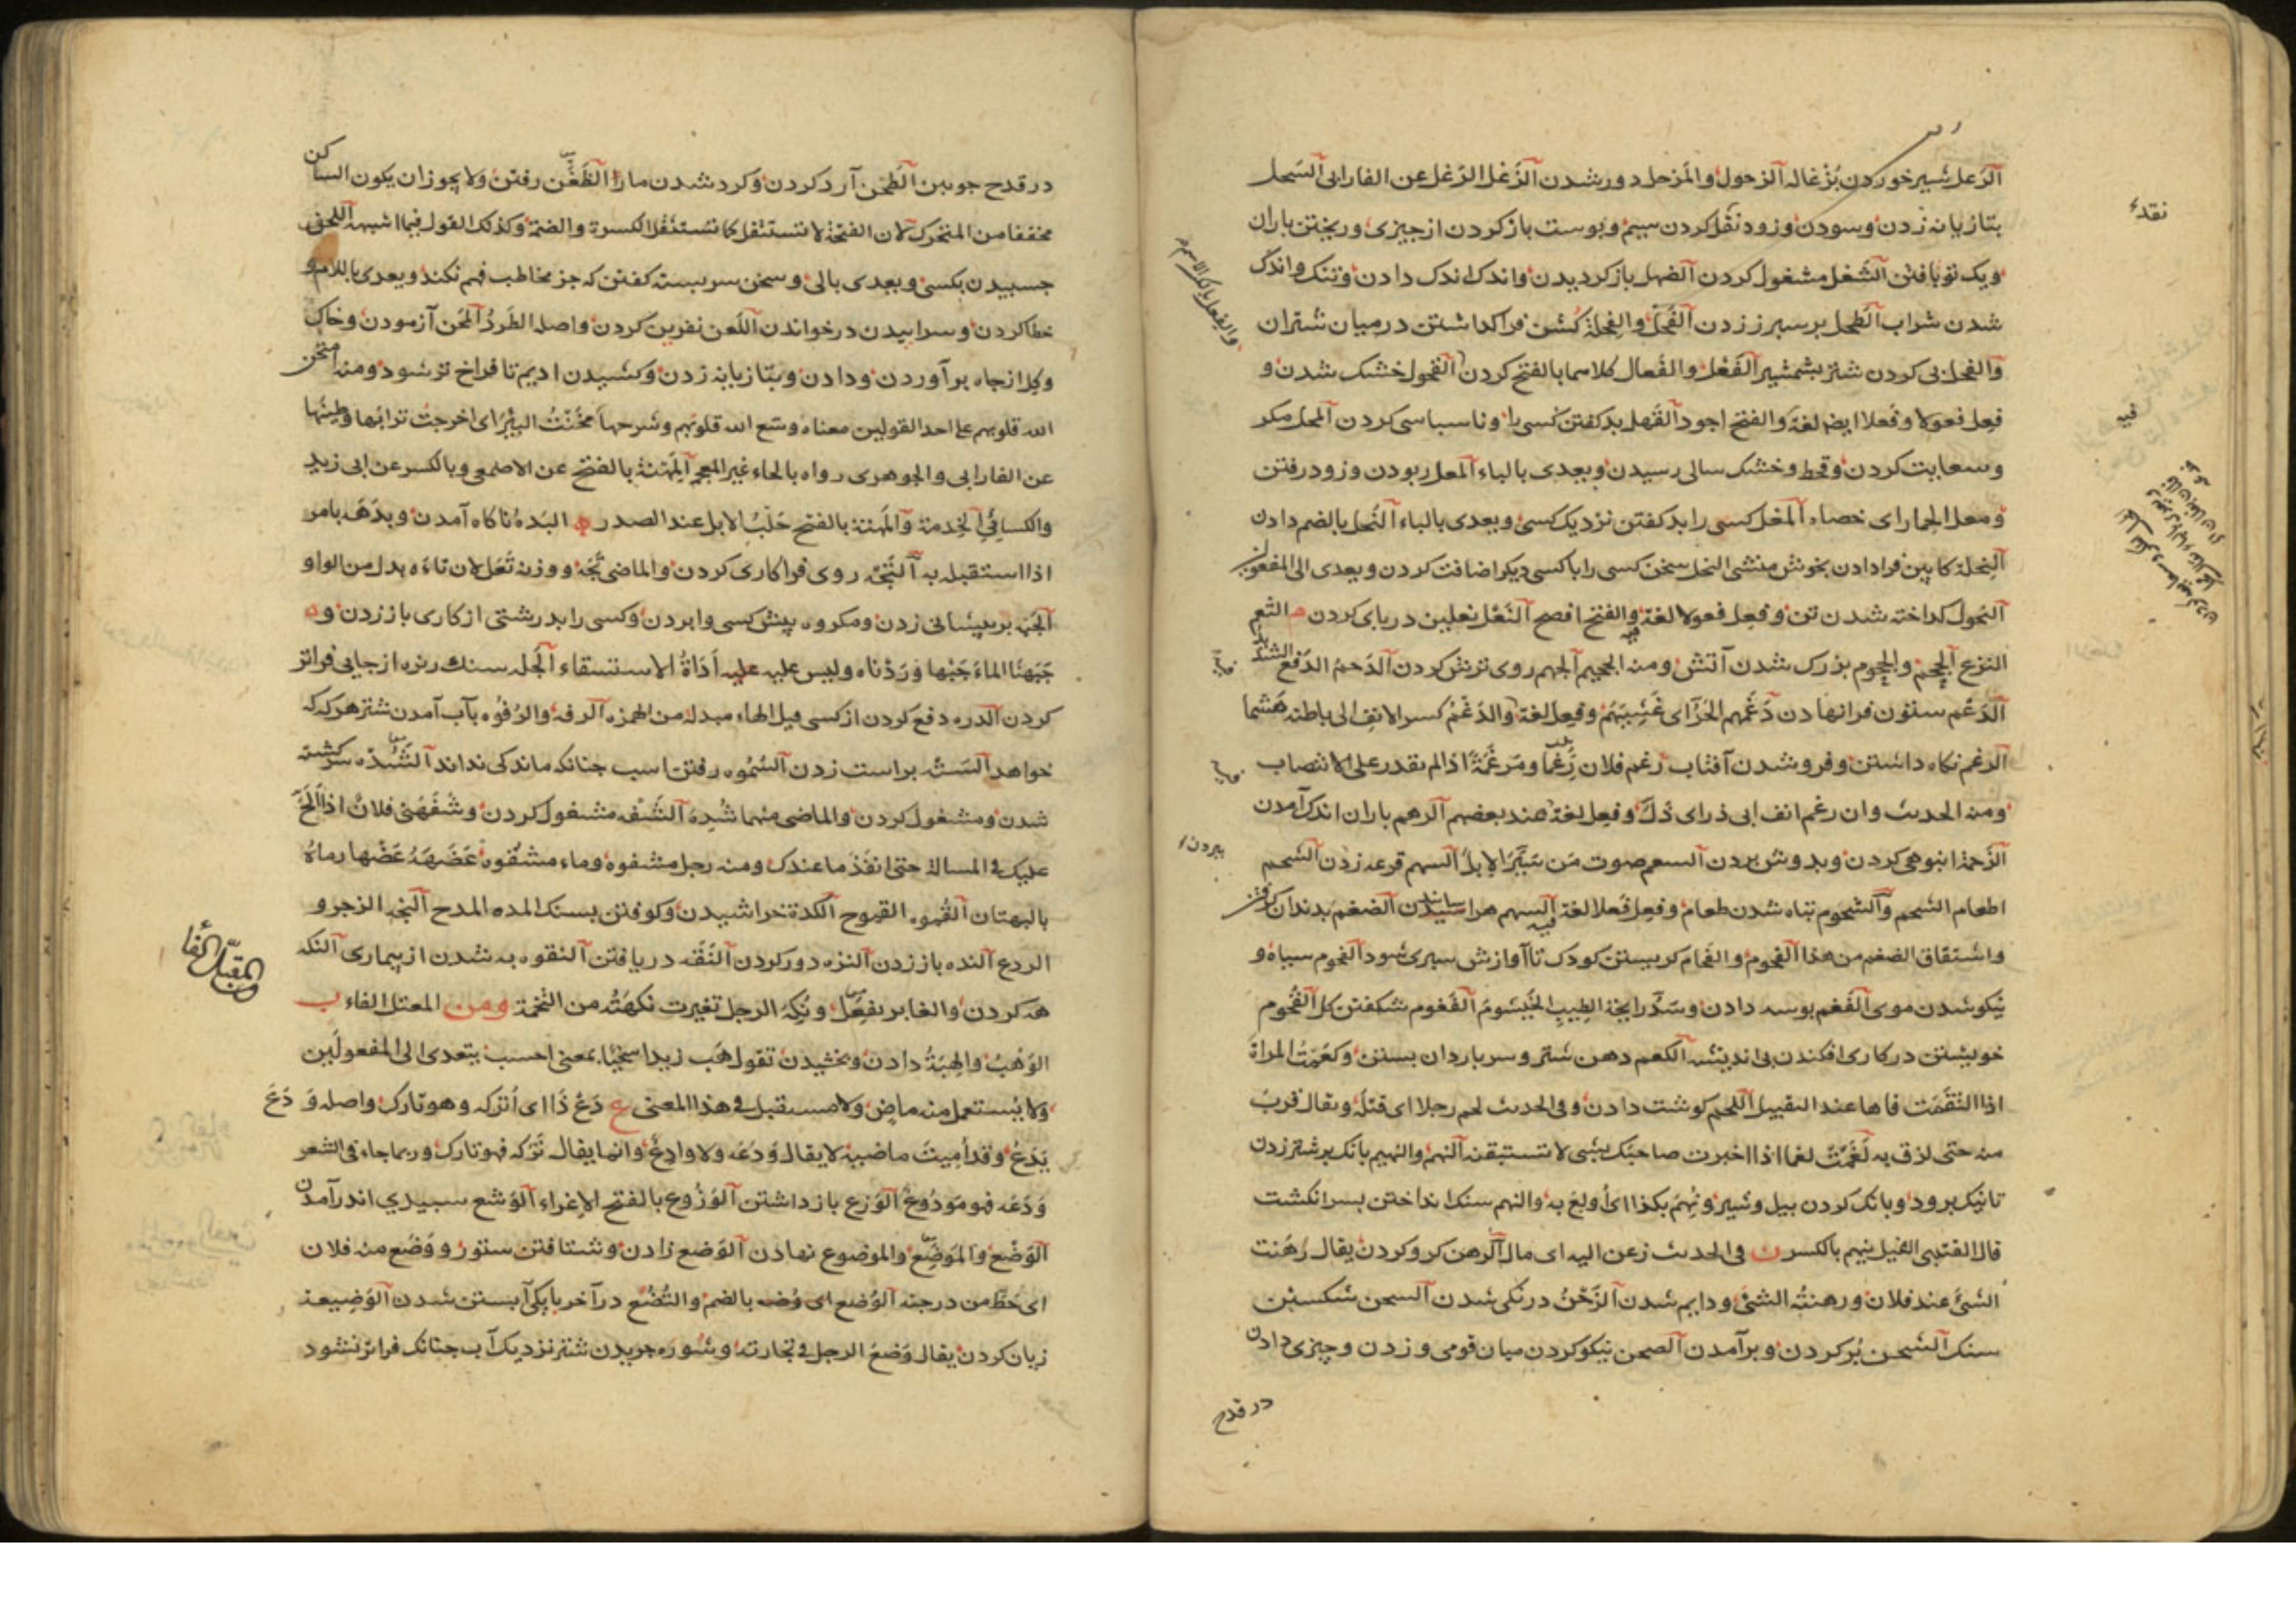 الرغل شیر خوردن بزغاله الزحول والمزحل دور شدن الزغل الرغل عن الفارابی السحل
بتازیانه زدن وسودن وزود نقد کردن سیم و پوست باز کردن از چیزی وریختن باران
ویک تو بافتن الشغل مشغول کردن الضهل باز کردیدن واندک اندک دادن وتنک واندک
شدن شراب الطحل بر سپرز زدن الفحل والفحلة کشن فرا کذاشتن در میان شتران
والفحل پی کردن شتر بشمشیر الفعل والفعال کلاهما بالفتح کردن القحول خشک شدن و
فعل فعولا وفعلا ایضا لغة والفتح اجود القهل بد کفتن کسی را وناسپاسی کردن المحل مکر
وسعایت کردن وقحط وخشک سالی رسیدن ویعدی بالباء المعل ربودن وزود رفتن
ومعل الحمار ای خصاه المغل کسی را بد کفتن نزدیک کسی ویعدی بالباء النحل بالضم دادن
النحلة کابین فرا دادن بخوش منشی النحل سخن کسی را با کسی دیکر اضافت کردن ویعدی الی المفعولین
النحول کداخته شدن تن وفعل فعولا لغة والفتح افصح النعل نعلین در پای کردن م الثعم
النزع الجحم والجحوم بزرک شدن آتش ومنه الجحیم الجهم روی ترش کردن الدحم الدفع الشدید
الدعم ستون فرا نهادن دغمهم الحر ای غشیهم وفعل لغة والدغم کسر الانف الی باطنه هشما
الرغم نکاه داشتن وفرو شدن آفتاب رغم فلان رغما ومرغمة اذا لم یقدر علی الانتصاب
ومنه الحدیث وان رغم انف ابی ذر ای ذل وفعل لغة عند بعضهم الرهم باران اندک آمدن
الزحمة انبوهی کردن وبدوش بردن السعم صوت من سیر الابل السهم قرعه زدن الشحم
اطعام الشحم والشحوم تباه شدن طعام وفعل فعلا لغة فیه السهم هراسانیدن الضغم بدندان کرفتن
واشتقاق الضیغم من هذا الفحوم والفحام کریستن کودک تا آوازش سپری شود الفحوم سیاه و
نیکو شدن موی الفغم بوسه دادن وسد رایحة الطیب الخیشوم الفغوم شکفتن کل القحوم
خویشتن در کاری افکندن بی اندیشه الکعم دهن شتر وسر باردان بستن وکعمت المراة
اذا التقمت فاها عند التقبیل اللحم کوشت دادن وفی الحدیث لحم رجلا ای قتله ویقال قرب
منه حتی لزق به لغمت لغما اذا اخبرت صاحبک بشی لا تستیقنه النهم والنهیم بانک بر شتر زدن
تا نیک برود وبانک کردن پیل وشیر ونهم بکذا ای اولع به والنهم سنک انداختن بسر انکشت
قال القتبی الفیل ینهم بالکسر ن فی الحدیث زعن الیه ای مال الرهن کرو کردن یقال رهنت
الشی عند فلان ورهنته الشی ودایم شدن الزحن درنکی شدن السحن شکستن
سنک الشحن پر کردن وبرآمدن الصحن نیکو کردن میان قومی وزدن وچیزی دادن
در قدح
نقد
فیه
بردن
در قدح چوبین الطحن آرد کردن وکرد شدن مار الظعن رفتن ولا یجوز ان یکون الساکن
مخففا من المتحرک لان الفتحة لا تستثقل کما تستثقل الکسرة والضمة وکذلک القول فیما اشبهه اللحن
چسبیدن بکسی ویعدی بالی وسخن سربسته کفتن که جز مخاطب فهم نکند ویعدی باللام و
خطا کردن وسراییدن در خواندن اللعن نفرین کردن واصله الطرد المحن آزمودن وخاک
وکل از چاه برآوردن ودادن وبتازیانه زدن وکشیدن ادیم تا فراخ تر شود ومنه امتحن
الله قلوبهم علی احد القولین معناه وسع الله قلوبهم وشرحها محنت البئر ای اخرجت ترابها وطینها
عن الفارابی والجوهری رواه بالحاء غیر المعجم المهنة بالفتح عن الاصمعی وبالکسر عن ابی زید
والکسائی الخدمة والمهنة بالفتح حلب الابل عند الصدر ه البده ناکاه آمدن وبدهه بامر
اذا استقبله به التجه روی فرا کاری کردن والماضی تجه ووزنه تعل لان تاءه بدل من الواو
الجبه بر پیشانی زدن ومکروه پیش کسی وا بردن وکسی را بدرشتی از کاری باز زدن و
جبهنا الماء جبها وردناه ولیس علیه اداة الاستسقاء الجله سنک ریزه از جایی فراتر
کردن الدره دفع کردن از کسی قیل الهاء مبدلة من الهمزه الرفه والرفوه بآب آمدن شتر هر که که
خواهد السته بر است زدن السموه رفتن اسب چنانکه ماندکی نداند الشده سرکشته
شدن ومشغول کردن والماضی منهما شده الشفه مشغول کردن وشفهنی فلان اذا الح
علیک فی المسالة حتی انفذ ما عندک ومنه رجل مشفوه وماء مشفوه عضهه عضها رماه
بالبهتان القموه القموح الکده خراشیدن وکوفتن بسنک المده المدح النجه الزجر و
الردع النده باز زدن النزه دور کردن النقه دریافتن النقوه به شدن از بیماری النکه
هه کردن والغابر یفعل ونکه الرجل تغیرت نکهته من التخمة ومن المعتل الفاء ب
الوهب والهبة دادن وبخشیدن تقول هب زیدا سخیا بمعنی احسب یتعدی الی المفعولین
ولا یستعمل منه ماض ولا مستقبل فی هذا المعنی ع دع ذا ای اترکه وهو تارک واصله ودع
یدع وقد امیت ماضیه لا یقال ودعه ولا وادع وانما یقال ترکه فهو تارک وربما جاء فی الشعر
ودعه فهو مودوع الوزع باز داشتن الوزوع بالفتح الاغراء الوشع سپیدی اندر آمدن
الوضع والموضع والموضوع نهادن الوضع زادن وشتافتن ستور ووضع منه فلان
ای حط من درجته الوضع بالضم والتضع در آخر پاکی آبستن شدن الوضیعة
زیان کردن یقال وضع الرجل فی تجارته وشوره چریدن شتر نزدیک آب چنانک فراتر نشود